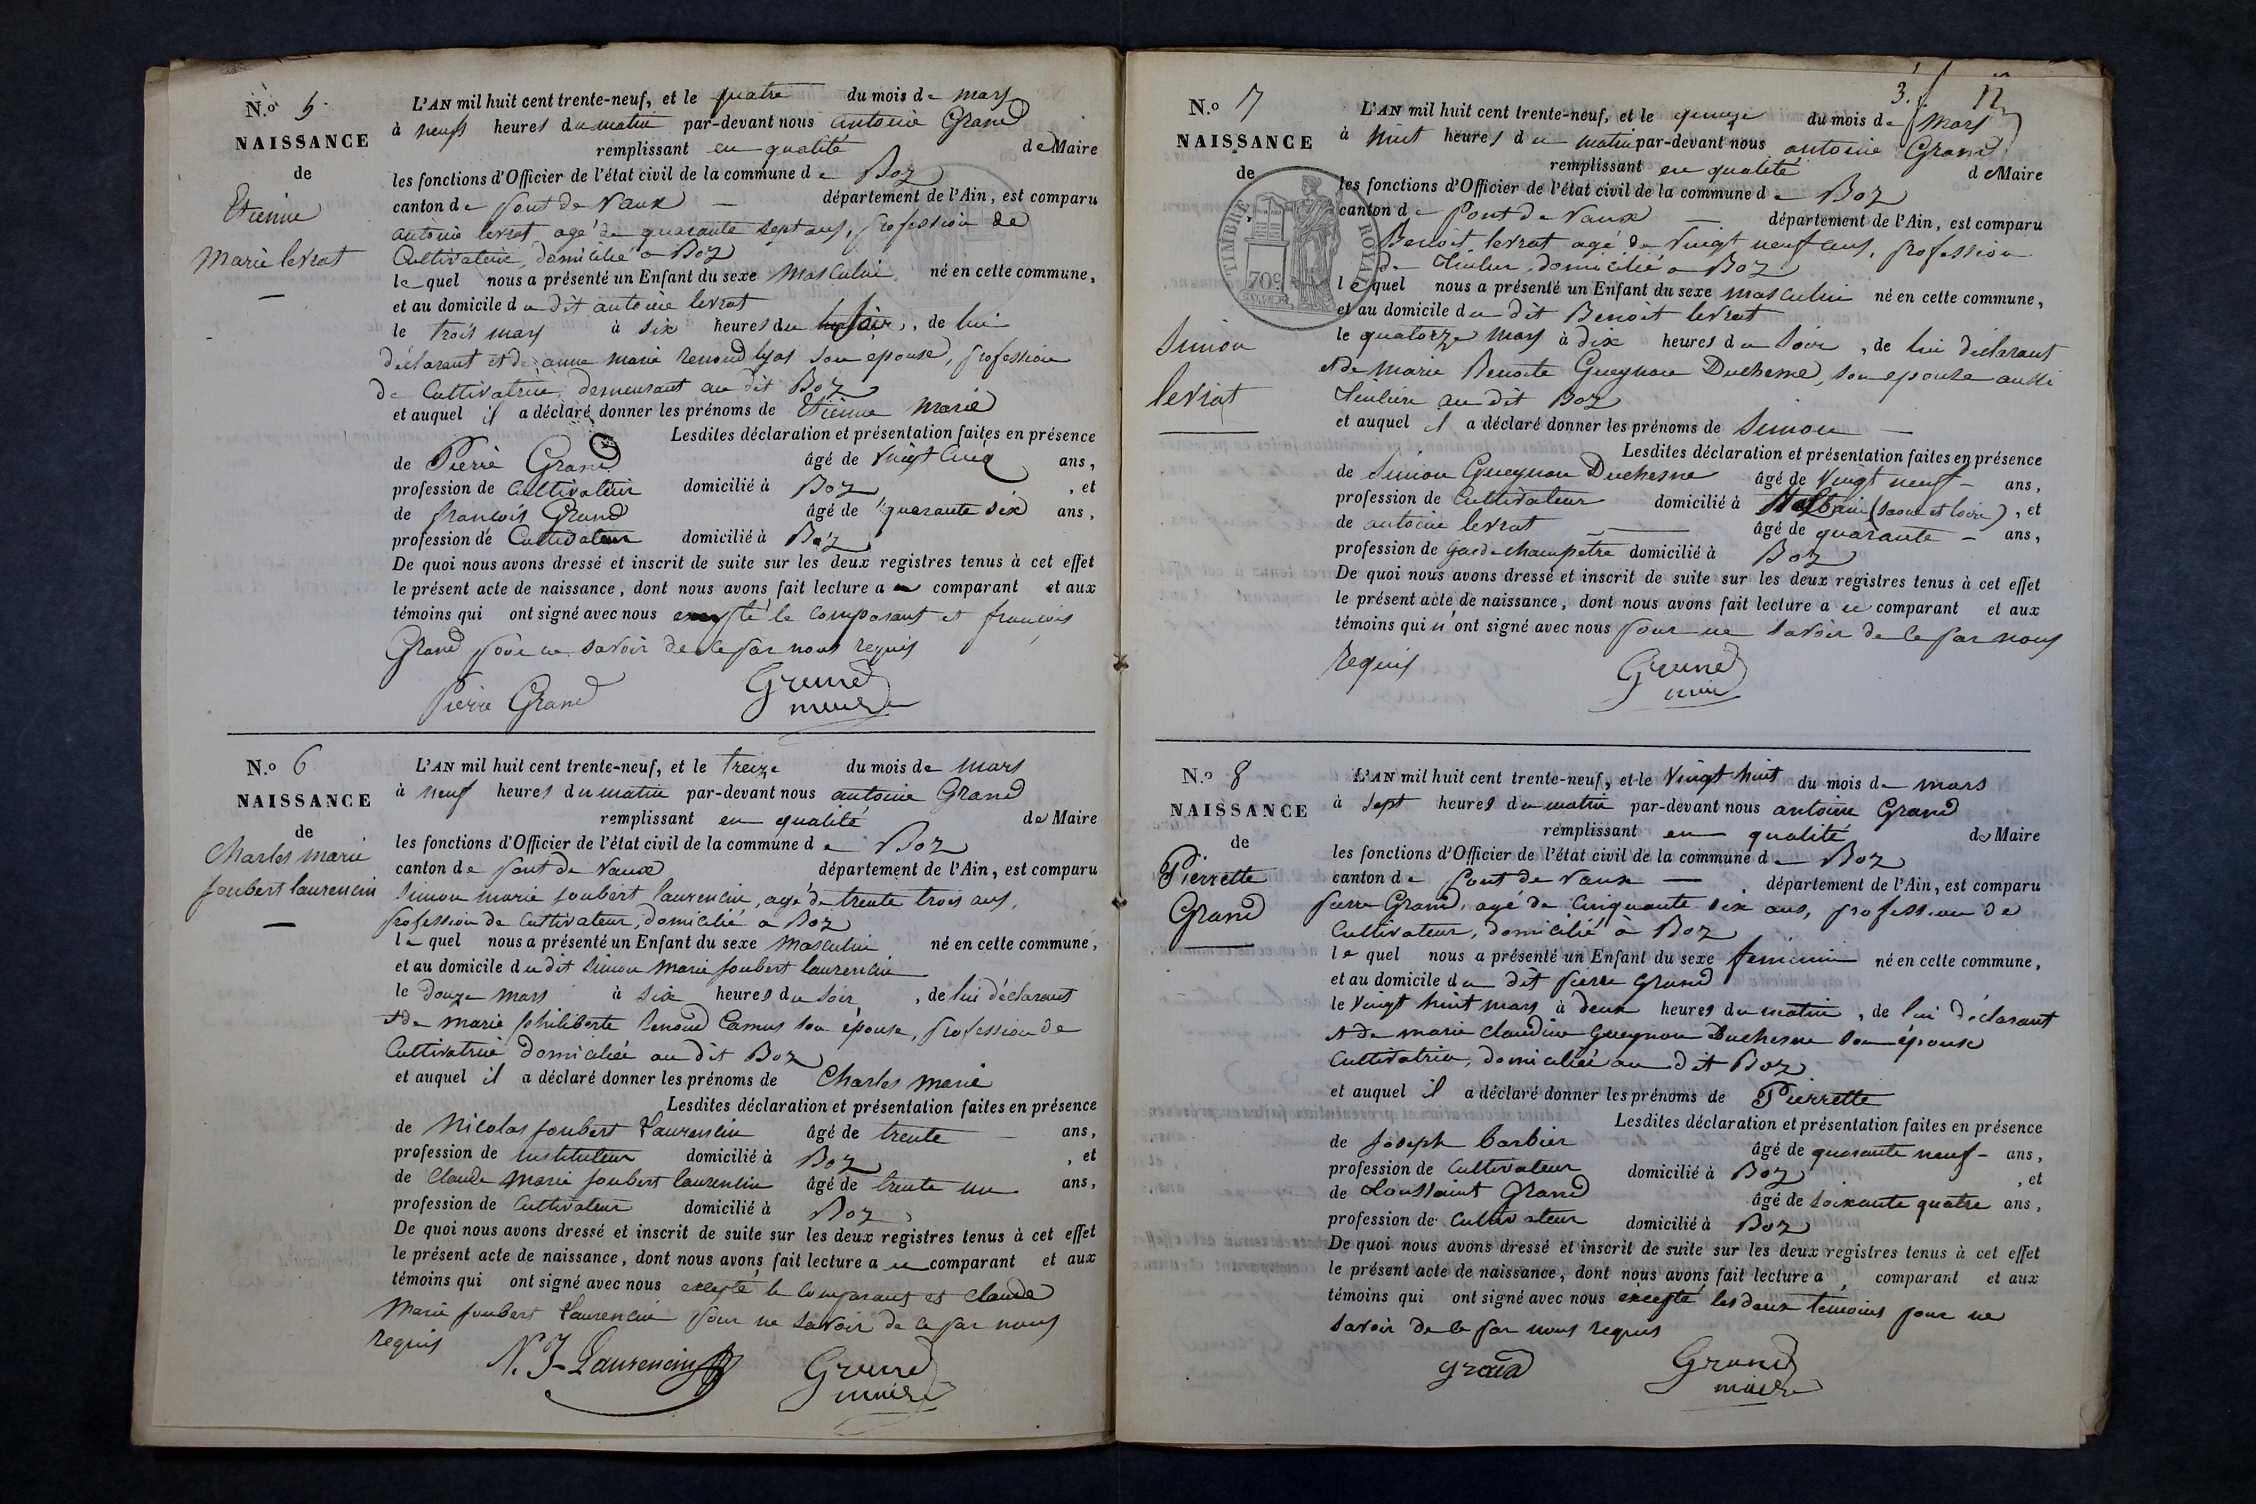 N.o 5.
NAISSANCE
de
Etienne
Marie levrat
L'AN mil huit cent trente-neuf, et le quatre du mois de mars
à neuf heures du matin par-devant nous antoine Grand
remplissant en qualité de Maire
les fonctions d'Officier de l'état civil de la commune de Boz
canton de pont de Vaux — département de l'Ain, est comparu
antoine levrat agé de quarante sept ans, profession de
Cultivateur, domicilié a Boz
le quel nous a présenté un Enfant du sexe Masculin né en cette commune,
et au domicile du dit antoine levrat
le trois mars à six heures du soir, de lui
déclarant et de anne marie renoud lyat son épouse, profession
de Cultivatrice, demeurant au dit Boz
et auquel il a déclaré donner les prénoms de Etienne Marie
Lesdites déclaration et présentation faites en présence
de Pierre Grand âgé de Vingt Cinq ans,
profession de Cultivateur domicilié à Boz, et
de françois Grand âgé de quarante six ans,
profession de Cultivateur domicilié à Boz
De quoi nous avons dressé et inscrit de suite sur les deux registres tenus à cet effet
le présent acte de naissance, dont nous avons fait lecture a u comparant et aux
témoins qui ont signé avec nous excepté le comparant et françois
Grand pour ne savoir de ce par nous requis
Pierre Grand Grand
maire
N.o 6
NAISSANCE
de
Charles marie
joubert laurencin
L'AN mil huit cent trente-neuf, et le treize du mois de mars
à neuf heures du matin par-devant nous antoine Grand
remplissant en qualité de Maire
les fonctions d'Officier de l'état civil de la commune de Boz
canton de pont de Vaux département de l'Ain, est comparu
Simon marie joubert laurencin, agé de trente trois ans,
profession de Cultivateur, domicilié a Boz
le quel nous a présenté un Enfant du sexe Masculin né en cette commune,
et au domicile du dit Simon Marie joubert laurencin
le douze mars à six heures du soir, de lui déclarant
et de marie philiberte renoud Camus son épouse, profession de
Cultivatrice domiciliée au dit Boz
et auquel il a déclaré donner les prénoms de Charles marie
Lesdites déclaration et présentation faites en présence
de Nicolas joubert Laurencin âgé de trente — ans,
profession de instituteur domicilié à Boz, et
de Claude Marie joubert laurencin âgé de trente un ans,
profession de Cultivateur domicilié à Boz
De quoi nous avons dressé et inscrit de suite sur les deux registres tenus à cet effet
le présent acte de naissance, dont nous avons fait lecture a u comparant et aux
témoins qui ont signé avec nous excepté le comparant et claude
Marie joubert Laurencin pour ne savoir de ce par nous
requis
N. J. Laurencin Grand
maire
3.
N.o 7
NAISSANCE
de
Simon
levrat
TIMBRE ROYAL
70c
L'AN mil huit cent trente-neuf, et le quinze du mois de Mars
à huit heures du matin par-devant nous antoine Grand
remplissant en qualité de Maire
les fonctions d'Officier de l'état civil de la commune de Boz
canton de pont de Vaux — département de l'Ain, est comparu
Benoit levrat agé de Vingt neuf ans, profession
de tuilier, domicilié a Boz
le quel nous a présenté un Enfant du sexe masculin né en cette commune,
et au domicile du dit Benoit levrat
le quatorze Mars à dix heures du Soir, de lui déclarant
et de marie Benoite Gueynon Duchesne, son épouse aussi
tuilière au dit Boz
et auquel il a déclaré donner les prénoms de Simon —
Lesdites déclaration et présentation faites en présence
de Simon Gueynon Duchesne âgé de Vingt neuf — ans,
profession de Cultivateur domicilié à (Saone et loire), et
de antoine levrat — âgé de quarante — ans,
profession de Garde champêtre domicilié à Boz
De quoi nous avons dressé et inscrit de suite sur les deux registres tenus à cet effet
le présent acte de naissance, dont nous avons fait lecture a u comparant et aux
témoins qui n'ont signé avec nous pour ne savoir de ce par nous
requis Grand
maire
N.o 8
NAISSANCE
de
Pierrette
Grand
L'AN mil huit cent trente-neuf, et le Vingt huit du mois de mars
à sept heures du matin par-devant nous antoine Grand
remplissant en qualité de Maire
les fonctions d'Officier de l'état civil de la commune de Boz
canton de pont de Vaux — département de l'Ain, est comparu
pierre Grand, agé de Cinquante six ans, profession de
Cultivateur, domicilié à Boz
le quel nous a présenté un Enfant du sexe feminin né en cette commune,
et au domicile du dit pierre Grand
le Vingt huit mars à deux heures du matin, de lui déclarant
et de marie claudine Gueynon Duchesne son épouse
Cultivatrice, domiciliée au dit Boz
et auquel il a déclaré donner les prénoms de Pierrette
Lesdites déclaration et présentation faites en présence
de joseph barbier âgé de quarante neuf — ans,
profession de Cultivateur domicilié à Boz, et
de Toussaint Grand âgé de soixante quatre ans,
profession de Cultivateur domicilié à Boz
De quoi nous avons dressé et inscrit de suite sur les deux registres tenus à cet effet
le présent acte de naissance, dont nous avons fait lecture a comparant et aux
témoins qui ont signé avec nous excepté les deux témoins pour ne
savoir de ce par nous requis
grand Grand
maire